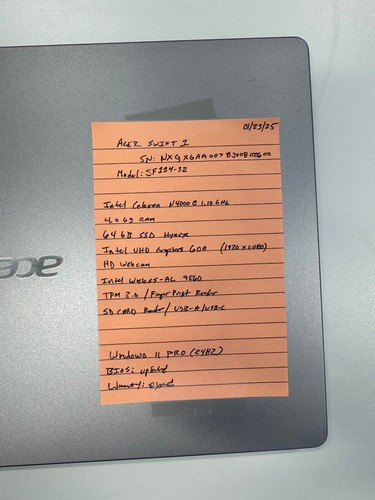 01/23/25
ACER SWIFT 1
SN: NXGXGAA007
Model: SF114-32
Intel Celeron N4000 @ 1.10 GHz
4.0 GB RAM
64 GB SSD Hynix
Intel UHD Graphics 600 (1920 x 1080)
HD Webcam
Intel Wireless-AC 9560
TPM 2.0 / Finger Print Reader
SD CARD Reader / USB-A / USB-C
Windows 11 PRO (24H2)
BIOS: updated
Warranty: expired
acer